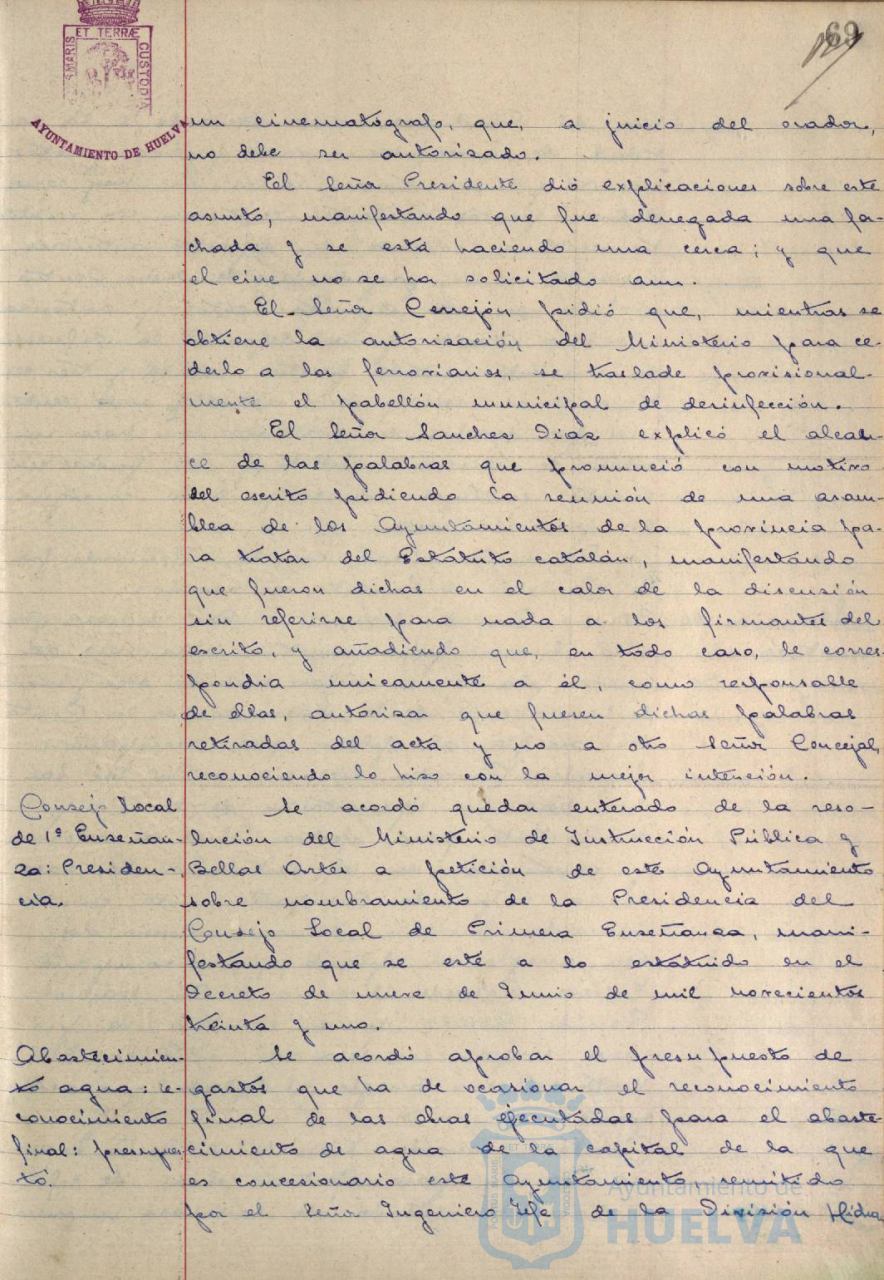 69
MARIS ET TERRÆ CUSTODIA
AYUNTAMIENTO DE HUELVA
un cinematógrafo, que, a juicio del orador,
no debe ser autorizado.
El Señor Presidente dió explicaciones sobre este
asunto, manifestando que fue denegada una fa-
chada y se está haciendo una cerca; y que
el cine no se ha solicitado aun.
El Señor Cerrejón pidió que, mientras se
obtiene la autorización del Ministerio para ce-
derlo a los ferroviarios, se traslade provisional-
mente el pabellón municipal de desinfección.
El Señor Sanches Diaz explicó el alcan-
ce de las palabras que pronunció con motivo
del escrito pidiendo la reunión de una asam-
blea de los Ayuntamientos de la provincia pa-
ra tratar del Estatuto catalán, manifestando
que fueron dichas en el calor de la discusión
sin referirse para nada a los firmantes del
escrito, y añadiendo que, en todo caso, le corres-
pondia unicamente a él, como responsable
de ellas, autorizar que fuesen dichas palabras
retiradas del acta y no a otro Señor Concejal,
reconociendo lo hizo con la mejor intención.
Consejo local
de 1ª Enseñan-
za: Presiden-
cia.
Se acordó quedar enterado de la reso-
lución del Ministerio de Instrucción Pública y
Bellas Artes a petición de este Ayuntamiento
sobre nombramiento de la Presidencia del
Consejo Local de Primera Enseñanza, mani-
festando que se esté a lo estatuido en el
Decreto de nueve de Junio de mil novecientos
treinta y uno.
Abastecimien-
to agua: re-
conocimiento
final: presupues-
to.
Se acordó aprobar el presupuesto de
gastos que ha de ocasionar el reconocimiento
final de las obras ejecutadas para el abaste-
cimiento de agua de la capital de la que
es concesionario este Ayuntamiento, remitido
por el Señor Ingeniero Jefe de la División Hidra
Ayuntamiento de
HUELVA